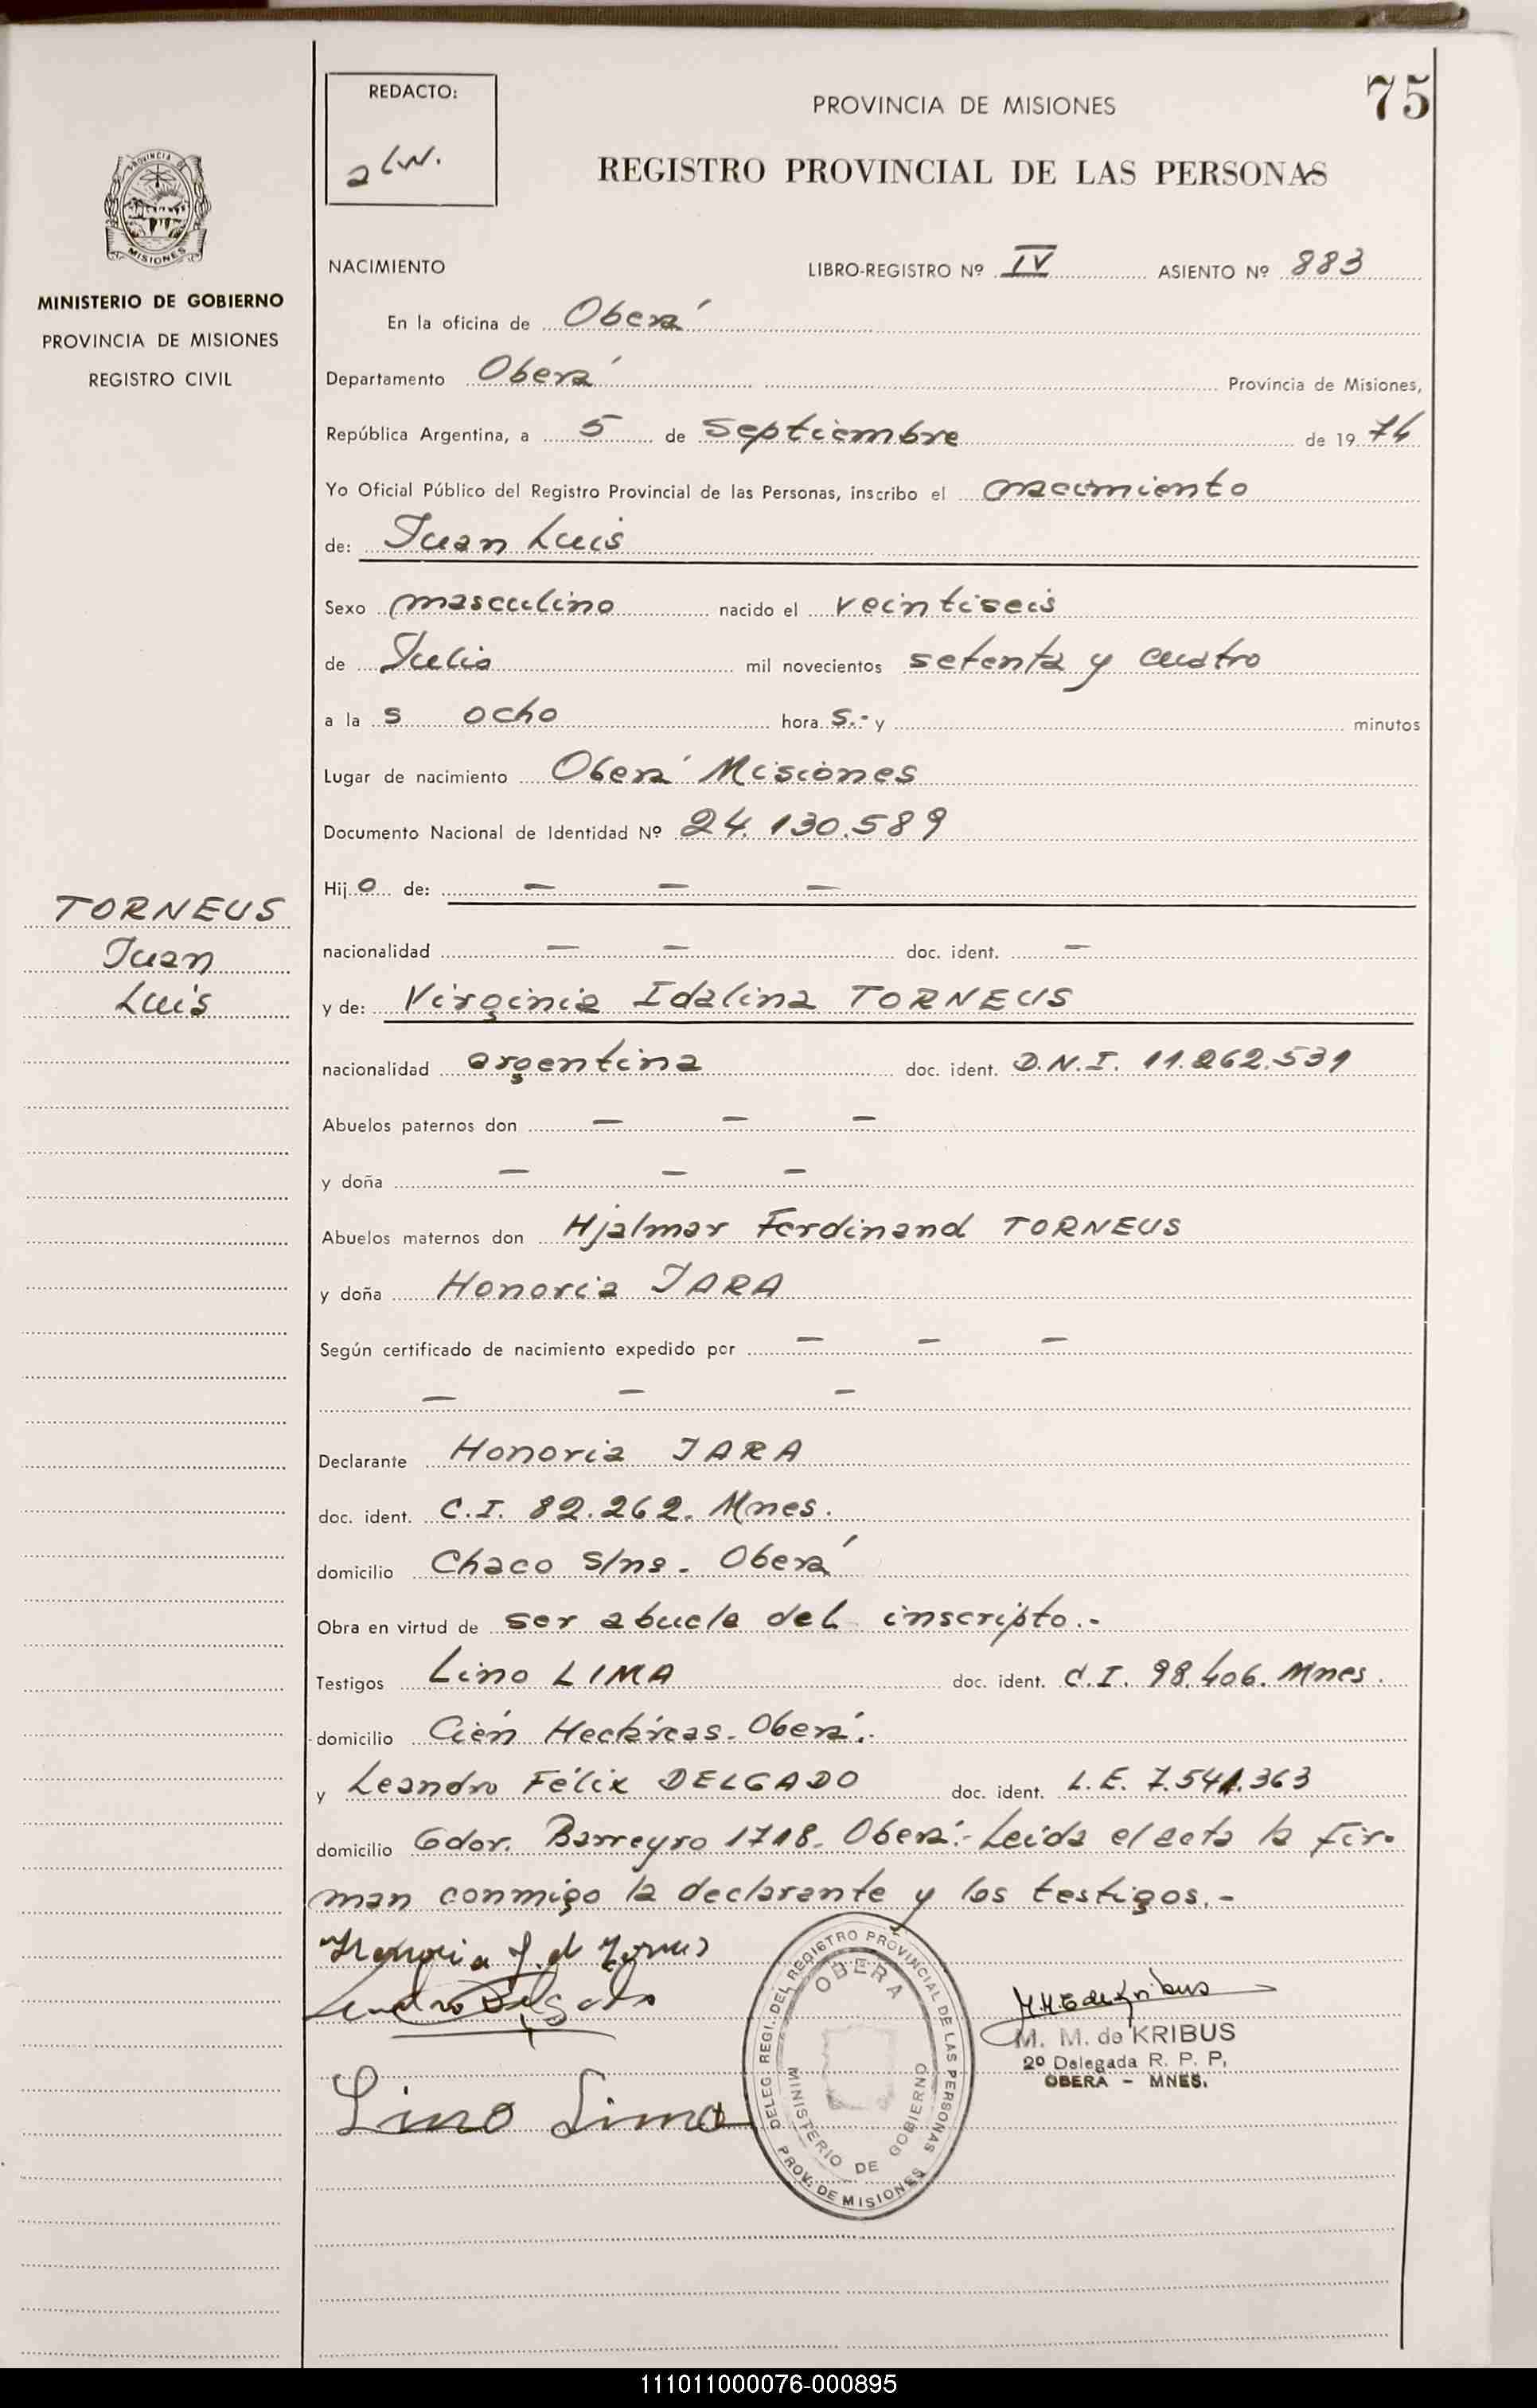 REDACTO:
PROVINCIA DE MISIONES
75
REGISTRO PROVINCIAL DE LAS PERSONAS
PROVINCIA DE
MISIONES
MINISTERIO DE GOBIERNO
PROVINCIA DE MISIONES
REGISTRO CIVIL
NACIMIENTO LIBRO-REGISTRO Nº IV ASIENTO Nº 883
En la oficina de Oberá
Departamento Oberá Provincia de Misiones,
República Argentina, a 5 de Septiembre de 1974
Yo Oficial Público del Registro Provincial de las Personas, inscribo el nacimiento
de: Juan Luis
Sexo masculino nacido el veintiseis
de Julio mil novecientos setenta y cuatro
a la s ocho hora s.- y minutos
Lugar de nacimiento Oberá Misiones
Documento Nacional de Identidad Nº 24.130.589
Hijo de: — — —
TORNEUS
Juan
Luis
nacionalidad — — doc. ident. —
y de: Virginia Idalina TORNEUS
nacionalidad argentina doc. ident. D.N.I. 11.262.531
Abuelos paternos don — — —
y doña — — —
Abuelos maternos don Hjalmar Ferdinand TORNEUS
y doña Honoria JARA
Según certificado de nacimiento expedido por — — —
— — —
Declarante Honoria JARA
doc. ident. C.I. 82.262. Mnes.
domicilio Chaco s/nº. Oberá
Obra en virtud de ser abuela del inscripto.-
Testigos Lino LIMA doc. ident. C.I. 98.406. Mnes.
domicilio Cién Hectáreas. Oberá.-
y Leandro Félix DELGADO doc. ident. L.E. 7.541.363
domicilio Gdor. Barreyro 1718. Oberá.- Leida el acta la fir-
man conmigo la declarante y los testigos.-
Honoria J. de Torneus
Leandro Delgado
Lino Lima
DELEG. REGI. DEL REGISTRO PROVINCIAL DE LAS PERSONAS
OBERA
MINISTERIO DE GOBIERNO
PROV. DE MISIONES
M. M. de KRIBUS
2º Delegada R. P. P.
OBERA - MNES.
111011000076-000895